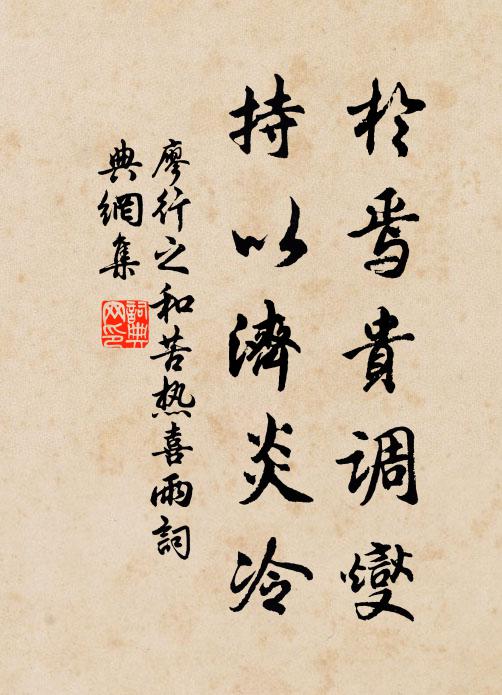 於焉貴調燮
持以濟炎冷
廖行之和苦热喜雨詞
典網集
詞典
网印